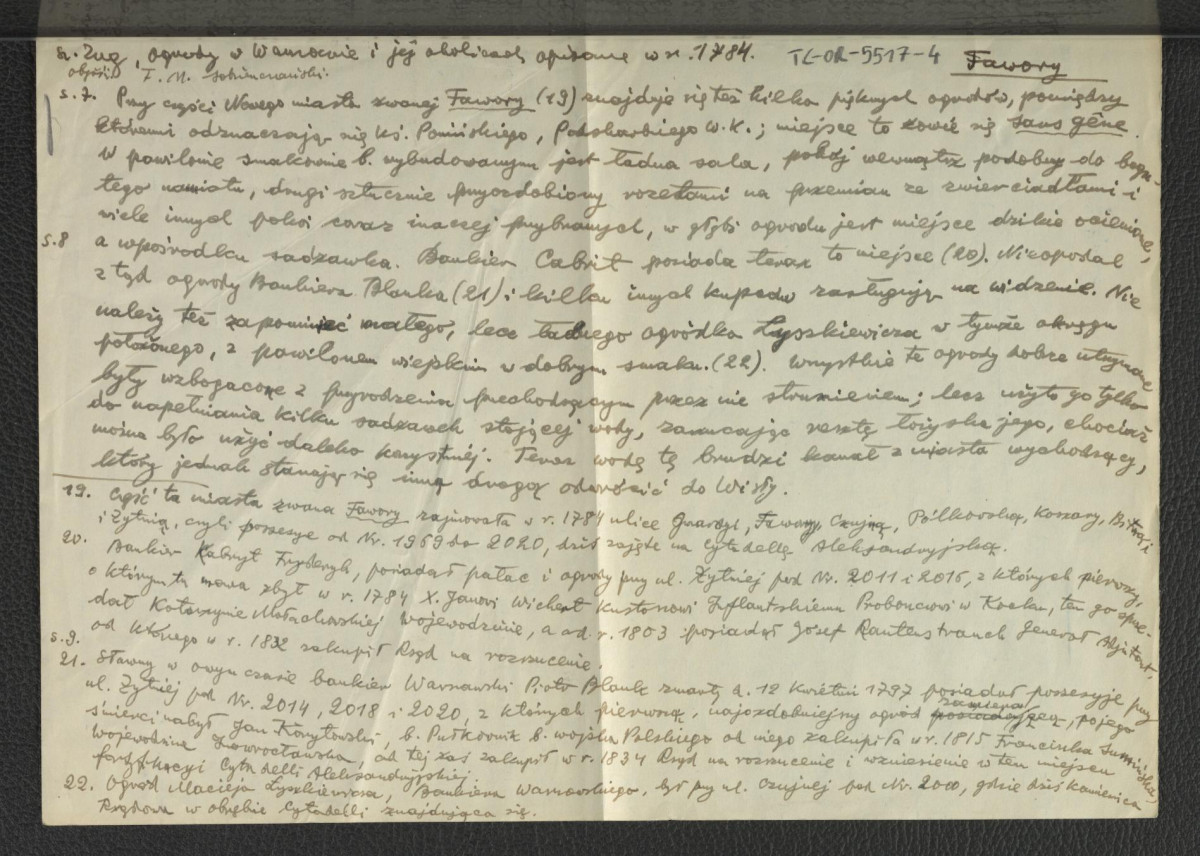 Sz. Zug, ogrody w Warszawie i jej okolicach opisane w r. 1784. TL-OR-5517-4 Fawory
objaśn. F. M. Sobieszczański.
s.7. Przy części Nowego miasta zwanej Fawory (19) znajduje się też kilka pięknych ogrodów, pomiędzy
któremi odznaczają się ks. Ponińskiego, Podskarbiego W.K.; miejsce to zowie się Sans gêne.
W pawilonie smakownie b. wybudowanym jest ładna sala, pokój wewnątrz podobny do boga-
tego namiotu, drugi sztucznie przyozdobiony rozetami na przemian ze zwierciadłami i
wiele innych pokoi coraz inaczej przybranych, w głębi ogrodu jest miejsce dzikie ocienione,
s.8 a wpośrodku sadzawka. Bankier Cabrit posiada teraz to miejsce (20). Nieopodal
z tąd ogrody Bankiera Blanka (21) i kilku innych kupców zasługują na widzenie. Nie
należy też zapomnieć małego, lecz ładnego ogródka Łyszkiewicza w tymże okręgu
położonego, z pawilonem wiejskim w dobrym smaku. (22). Wszystkie te ogrody dobrze utrzymane
były wzbogacone z przyrodzenia przechodzącym przez nie strumieniem; lecz użyto go tylko
do napełniania kilku sadzawek stojącej wody, zarzucając resztę łożyska jego, chociaż
można było użyć daleko korzystniej. Teraz wodę tę brudzi kanał z miasta wychodzący,
który jednak starają się inną drogą odwrócić do Wisły.
19. Część ta miasta zwana Fawory zajmowała w r. 1784 ulice Gwardyi, Fawory, Czujną, Półkowską, Koszary, Bitną i
i Żytnią, czyli possesye od Nr. 1969 do 2020, dziś zajęte na Cytadellę Aleksandryjską.
20. Bankier Kabryt Fryderyk, posiadał pałac i ogrody przy ul. Żytniej pod Nr. 2011 i 2016, z których pierwszy,
o którym tu mowa zbył w r. 1784 X. Janowi Wichert Kustoszowi Inflantskiemu Proboszczowi w Kocku, ten go sprze-
dał Katarzynie Małachowskiej Wojewodzinie, a od r. 1803 posiadał Józef Rautenstrauch Generał Adjutant,
od którego w r. 1832 zakupił Rząd na rozrzucenie.
s.9.
21. Sławny w owym czasie bankier Warszawski Piotr Blank zmarły d. 12 Kwietnia 1797 posiadał possesyje przy
ul. Żytniej pod Nr. 2014, 2018 i 2020, z których pierwszą, najozdobniejszy ogród zawierającą, po jego
śmierci nabył Jan Korytowski, b. Pułkownik b. wojska Polskiego od niego zakupiła w r. 1815 Franciszka Sumińska,
Wojewodzina Inowrocławska, od tej zaś zakupił w r. 1834 Rząd na rozrzucenie i wzniesienie w tem miejscu
fortyfikacyi Cytadelli Aleksandryjskiej.
22. Ogród Macieja Łyszkiewicza, Bankiera Warszawskiego, był przy ul. Czujnej pod Nr. 2000, gdzie dziś kamienica
Rządowa w obrębie Cytadelli znajdująca się.